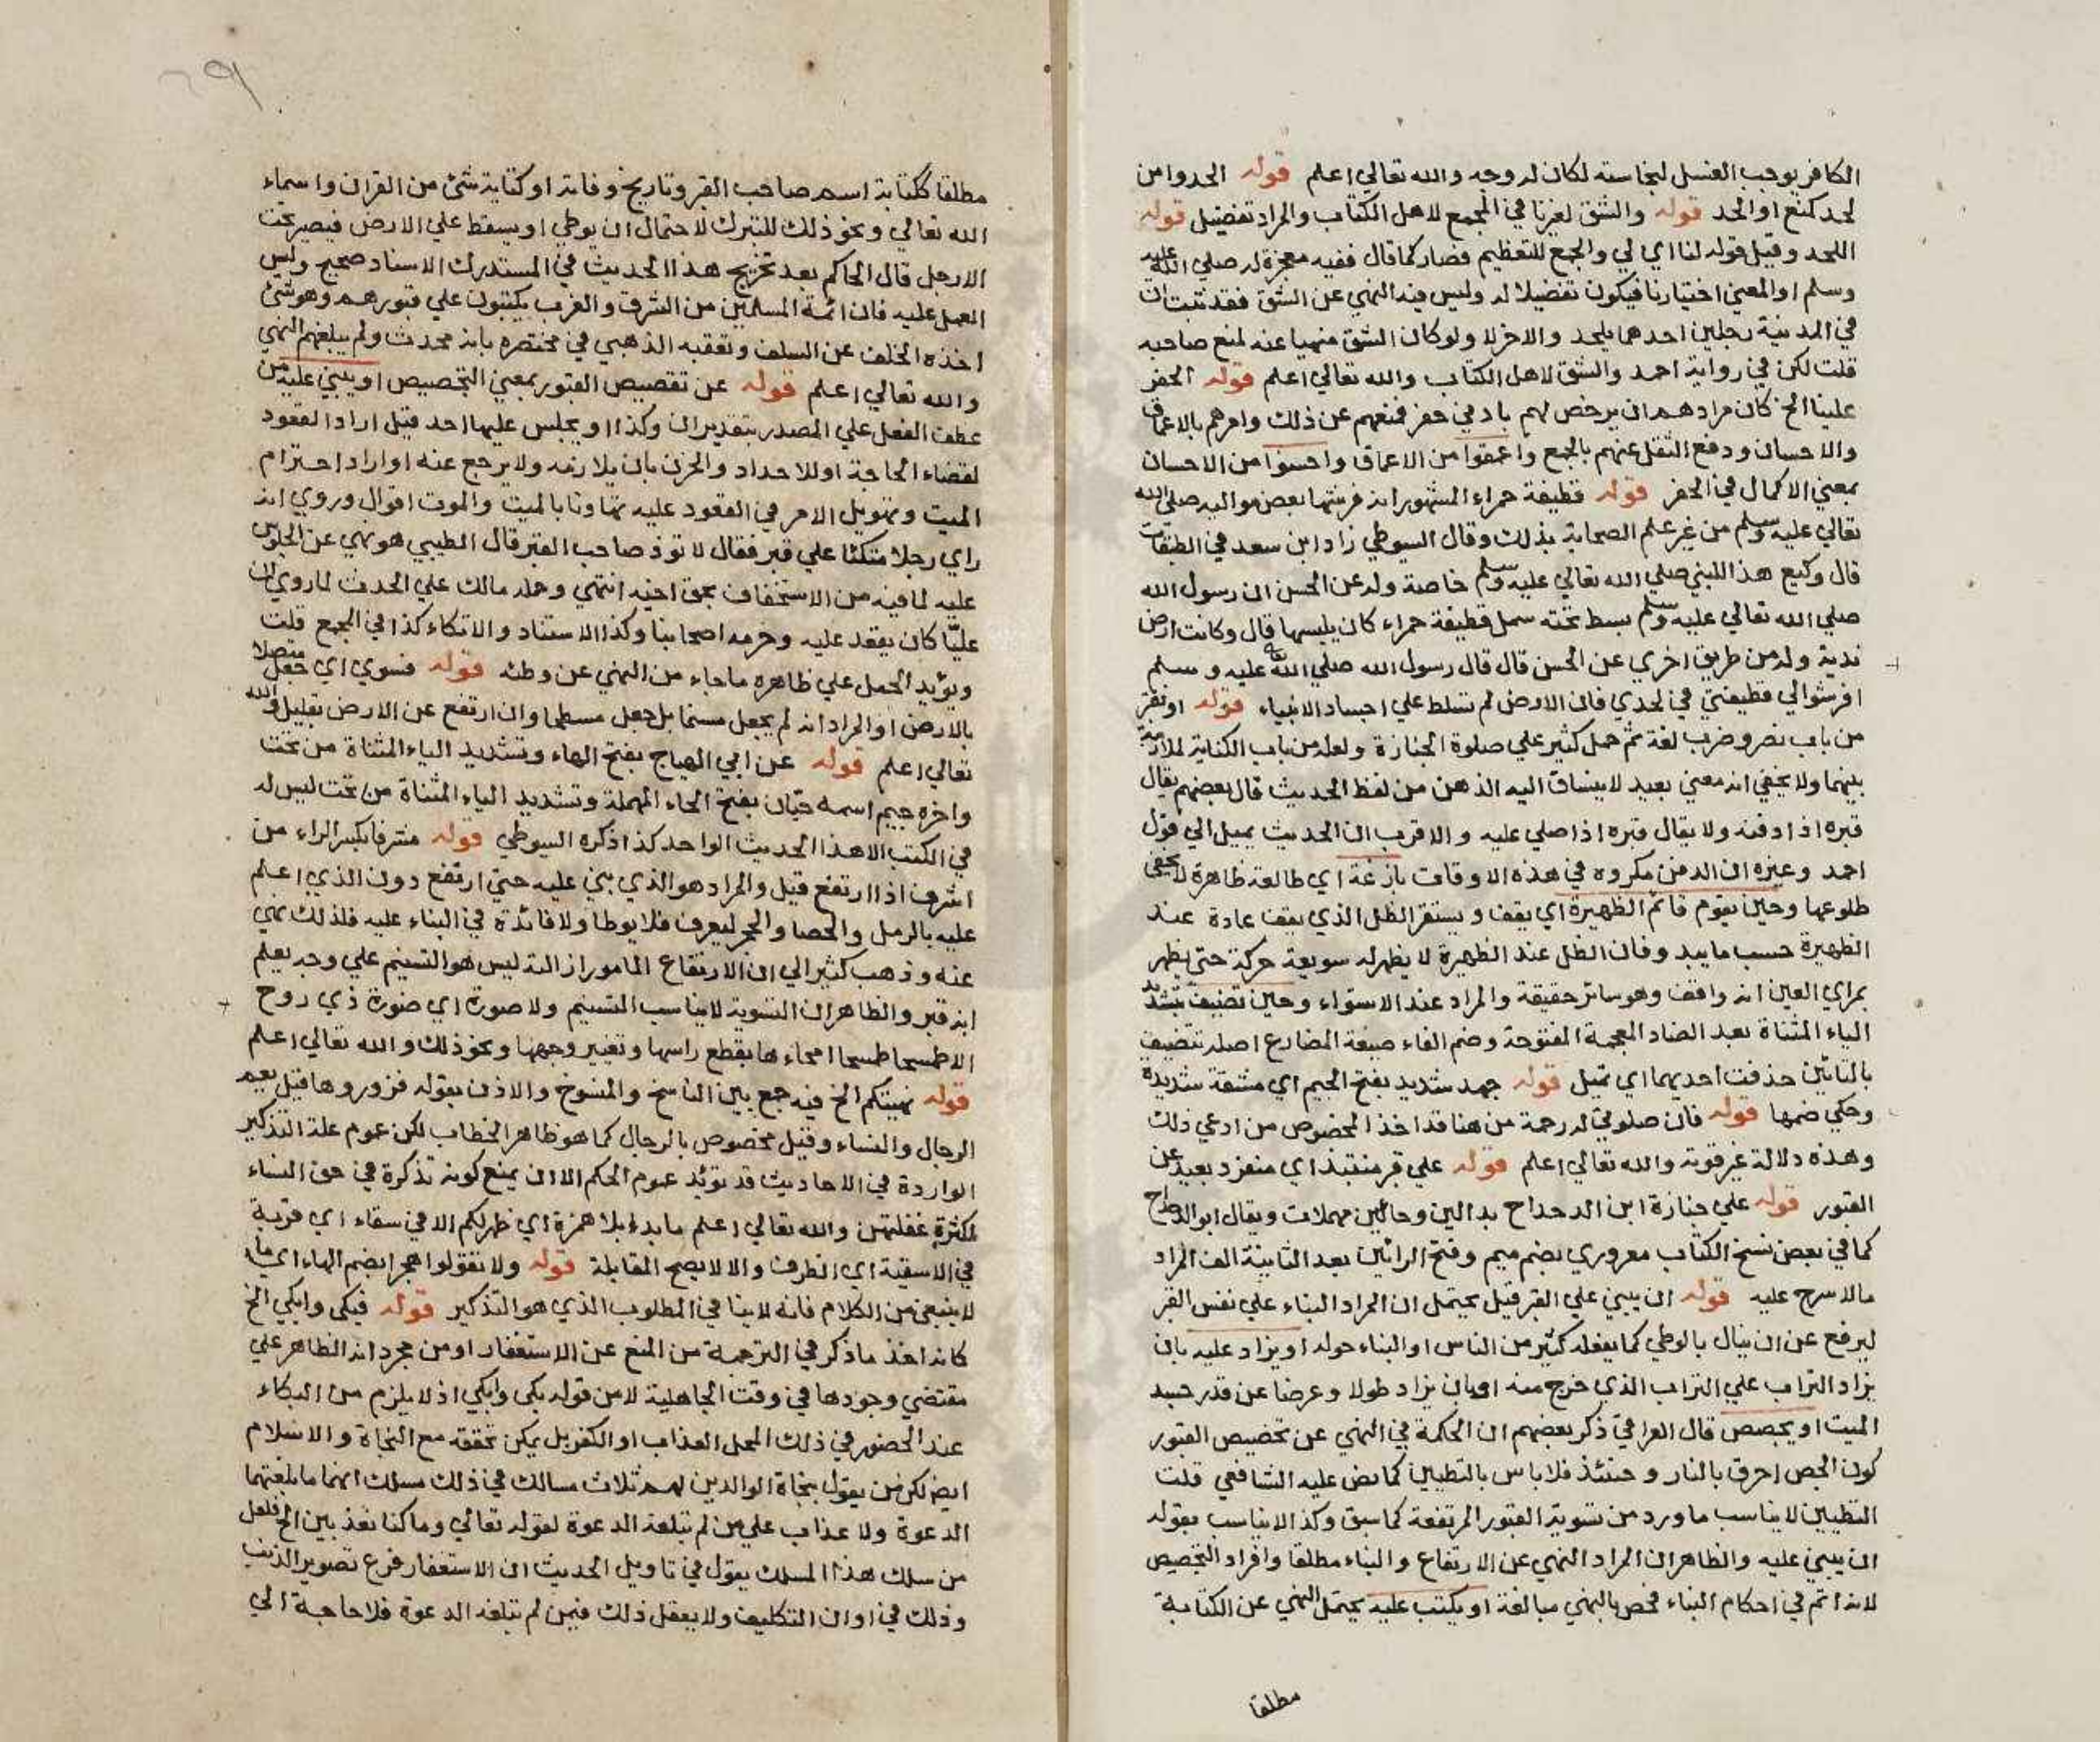 الكافر يوجب الغسل لنجاسته لكان له وجه والله تعالي اعلم قوله الحدوا من
لحد كمنع او الحد قوله والشق لغيرنا في المجمع لاهل الكتاب والمراد تفضيل قوله
اللحد وقيل قوله لنا اي لي والجمع للتعظيم فصار كما قال ففيه معجزة له صلي الله عليه
وسلم او المعني اختيارنا فيكون تفضيلا له وليس فيه النهي عن الشق فقد ثبت ان
في المدينة رجلين احدهما يلحد والاخر لا ولو كان الشق منهيا عنه لمنع صاحبه
قلت لكن في رواية احمد والشق لاهل الكتاب والله تعالي اعلم قوله الحفر
علينا الخ كان مرادهم ان يرخص لهم بادني حفر فمنعهم عن ذلك وامرهم بالاعماق
والاحسان ودفع الثقل عنهم بالجمع واعمقوا من الاعماق واحسنوا من الاحسان
بمعني الاكمال في الحفر قوله قطيفة حمراء المشهور انه فرشها بعض مواليه صلي الله
تعالي عليه وسلم من غير علم الصحابة بذلك وقال السيوطي زاد ابن سعد في الطبقات
قال وكيع هذا للنبي صلي الله تعالي عليه وسلم خاصة وله عن الحسن ان رسول الله
صلي الله تعالي عليه وسلم بسط تحته سمل قطيفة حمراء كان يلبسها قال وكانت ارض
ندية وله من طريق اخري عن الحسن قال قال رسول الله صلي الله عليه وسلم
افرشوا لي قطيفتي في لحدي فان الارض لم تسلط علي اجساد الانبياء قوله او نقبر
من باب نصر وضرب لغة ثم حمل كثير علي صلوة الجنازة ولعله من باب الكناية لملازمة
بينهما ولا يخفي انه معني بعيد لا ينساق اليه الذهن من لفظ الحديث قال بعضهم يقال
قبره اذا دفنه ولا يقال قبره اذا صلي عليه والاقرب ان الحديث يميل الي قول
احمد وغيره ان الدفن مكروه في هذه الاوقات بازغة اي طالعة ظاهرة لا يخفي
طلوعها وحين يقوم قائم الظهيرة اي يقف ويستقر الظل الذي يقف عادة عند
الظهيرة حسب ما يبدو فان الظل عند الظهيرة لا يظهر له سويعة حركة حتي يظهر
بمراي العين انه واقف وهو سائر حقيقة والمراد عند الاستواء وحين تضيف بتشديد
الياء المثناة بعد الضاد المعجمة المفتوحة وضم الفاء صيغة المضارع اصله تتضيف
بالتائين حذفت احديهما اي تميل قوله جهد شديد بفتح الجيم اي مشقة شديدة
وحكي ضمها قوله فان صلوتي له رحمة من هنا قد اخذ الخصوص من ادعي ذلك
وهذه دلالة غير قوية والله تعالي اعلم قوله علي قبر منتبذ اي منفرد بعيد عن
القبور قوله علي جنازة ابن الدحداح بدالين وحائين مهملات ويقال ابو الدحداح
كما في بعض نسخ الكتاب معروري بضم ميم وفتح الرائين بعد الثانية الف المراد
مالا سرج عليه قوله ان يبني علي القبر قيل يحتمل ان المراد البناء علي نفس القبر
ليرفع عن ان ينال بالوطي كما يفعله كثير من الناس او البناء حوله او يزاد عليه بان
يزاد التراب علي التراب الذي خرج منه او بان يزاد طولا وعرضا عن قدر جسد
الميت او يجصص قال العراقي ذكر بعضهم ان الحكمة في النهي عن تجصيص القبور
كون الجص احرق بالنار وحينئذ فلا باس بالتطيين كما نص عليه الشافعي قلت
التطيين لا يناسب ما ورد من تسوية القبور المرتفعة كما سبق وكذا لا يناسب بقوله
ان يبني عليه والظاهر ان المراد النهي عن الارتفاع والبناء مطلقا وافراد التجصيص
لانه اتم في احكام البناء فخص بالنهي مبالغة او يكتب عليه يحتمل النهي عن الكتابة
مطلقا
مطلقا ككتابة اسم صاحب القبر وتاريخ وفاته او كتابة شئ من القران واسماء
الله تعالي ونحو ذلك للتبرك لاحتمال ان يوطي او يسقط علي الارض فيصير تحت
الارجل قال الحاكم بعد تخريج هذا الحديث في المستدرك الاسناد صحيح وليس
العمل عليه فان ائمة المسلمين من الشرق والغرب يكتبون علي قبورهم وهو شئ
اخذه الخلف عن السلف وتعقبه الذهبي في مختصره بانه محدث ولم يبلغهم النهي
والله تعالي اعلم قوله عن تقصيص القبور بمعني التجصيص او يبني عليه من
عطف الفعل علي المصدر بتقدير ان وكذا او يجلس عليها احد قيل اراد القعود
لقضاء الحاجة او للاحداد والحزن بان يلازمه ولا يرجع عنه او اراد احترام
الميت وتهويل الامر في القعود عليه تهاونا بالميت والموت اقوال وروي انه
راي رجلا متكئا علي قبر فقال لا توذ صاحب القبر قال الطيبي هو نهي عن الجلوس
عليه لما فيه من الاستخفاف بحق اخيه انتهي وحمله مالك علي الحدث لما روي ان
عليّا كان يقعد عليه وحرمه اصحابنا وكذا الاستناد والاتكاء كذا في المجمع قلت
ويؤيد الحمل علي ظاهره ما جاء من النهي عن وطئه قوله فسوي اي جعل متصلا
بالارض او المراد انه لم يجعل مسنما بل جعل مسطحا وان ارتفع عن الارض بقليل والله
تعالي اعلم قوله عن ابي الهياج بفتح الهاء وتشديد الياء المثناة من تحت
واخره جيم اسمه حيّان بفتح الحاء المهملة وتشديد الياء المثناة من تحت ليس له
في الكتب الا هذا الحديث الواحد كذا ذكره السيوطي قوله مشرفا بكسر الراء من
اشرف اذا ارتفع قيل والمراد هو الذي بني عليه حتي ارتفع دون الذي اعلم
عليه بالرمل والحصا والحجر ليعرف فلا يوطا ولا فائدة في البناء عليه فلذلك نهي
عنه وذهب كثير الي ان الارتفاع المامور ازالته ليس هو التسنيم علي وجه يعلم
انه قبر والظاهر ان التسوية لا يناسب التسنيم ولا صورة اي صورة ذي روح
الا طمستها طمسها امحاءها بقطع راسها وتغيير وجهها ونحو ذلك والله تعالي اعلم
قوله نهيتكم الخ فيه جمع بين الناسخ والمنسوخ والاذن بقوله فزوروها قيل يعم
الرجال والنساء وقيل مخصوص بالرجال كما هو ظاهر الخطاب لكن عموم علة التذكير
الواردة في الاحاديث قد تؤيد عموم الحكم الا ان يمنع كونه تذكرة في حق النساء
لكثرة غفلتهن والله تعالي اعلم ما بدا بلا همزة اي ظهر لكم الا في سقاء اي قربة
في الاسقية اي الظرف والا لا يصح المقابلة قوله ولا تقولوا هجرا بضم الهاء اي ما
لا ينبغي من الكلام فانه لا ينافي المطلوب الذي هو التذكير قوله فبكي وابكي الخ
كانه اخذ ما ذكر في الترجمة من المنع عن الاستغفار او من مجرد انه الظاهر علي
مقتضي وجودها في وقت الجاهلية لا من قوله بكي وابكي اذ لا يلزم من البكاء
عند الحضور في ذلك المحل العذاب او الكفر بل يمكن تحققه مع النجاة والاسلام
ايضا لكن من يقول بنجاة الوالدين لهم ثلاث مسالك في ذلك مسلك انهما ما بلغتهما
الدعوة ولا عذاب علي من لم تبلغه الدعوة لقوله تعالي وما كنا معذبين الخ فلعل
من سلك هذا المسلك يقول في تاويل الحديث ان الاستغفار فرع تصوير الذنب
وذلك في اوان التكليف ولا يعقل ذلك فيمن لم تبلغه الدعوة فلا حاجة الي